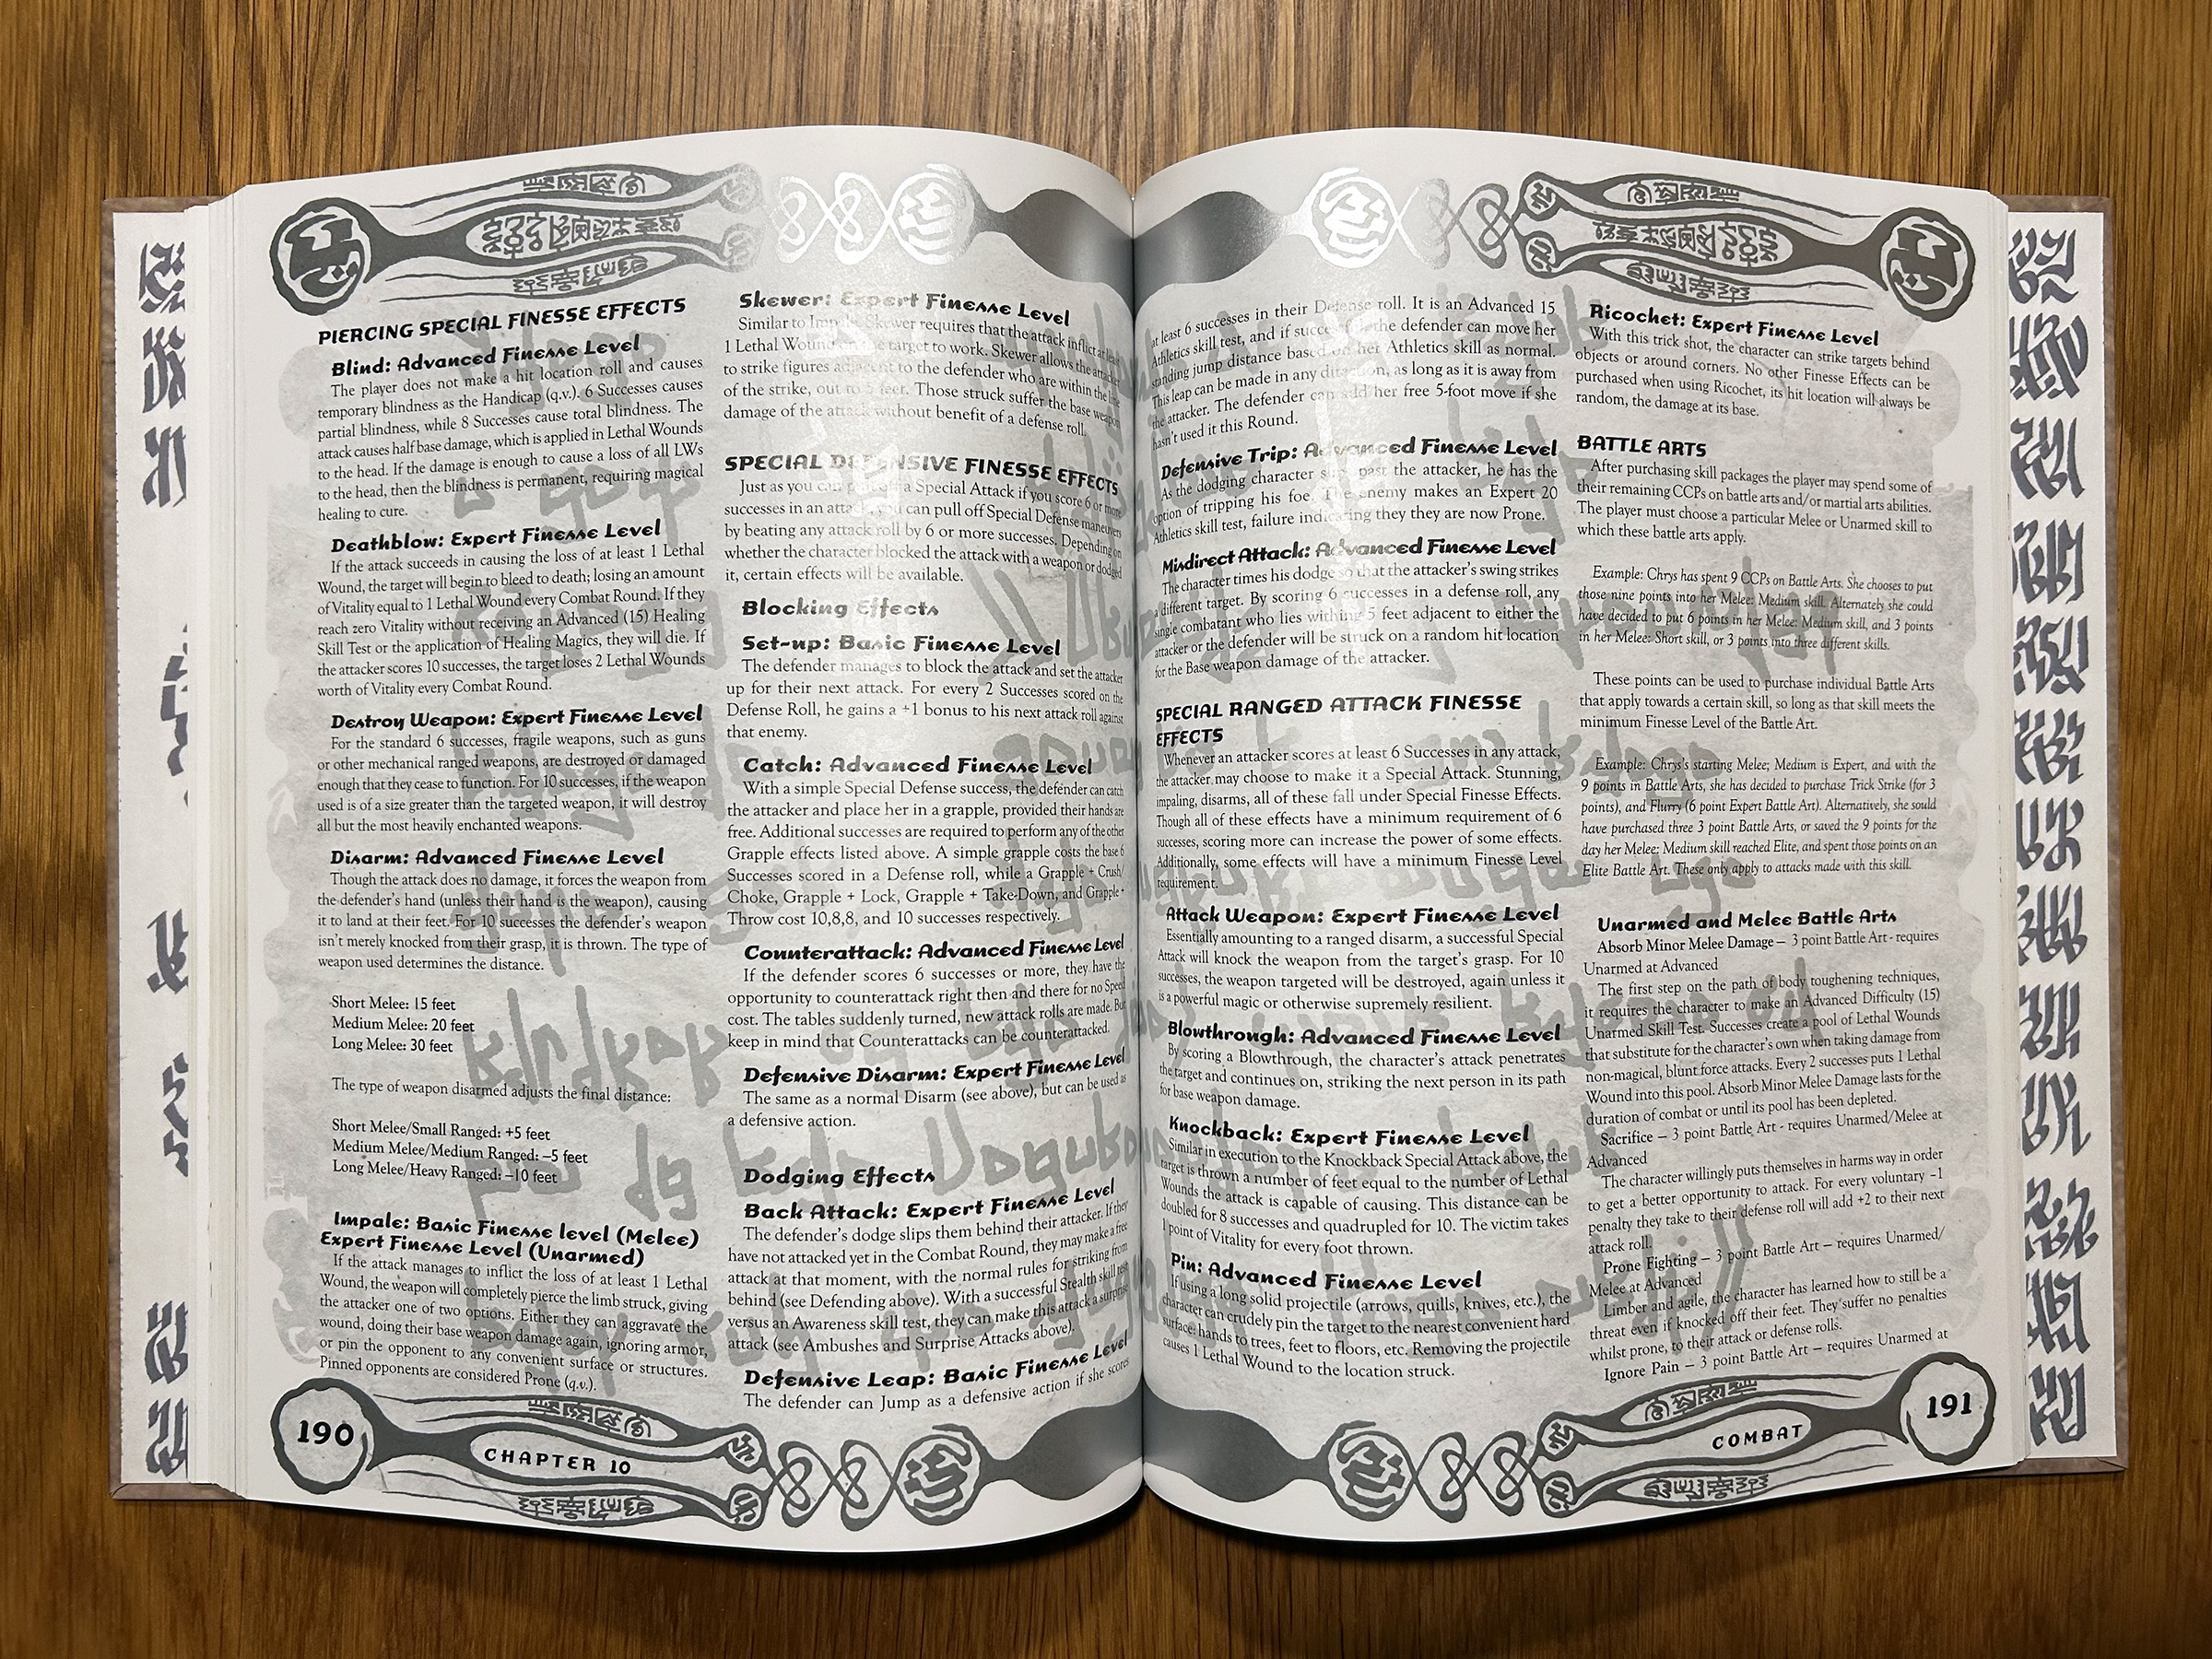 PIERCING SPECIAL FINESSE EFFECTS
Blind: Advanced Finesse Level
The player does not make a hit location roll and causes
temporary blindness as the Handicap (q.v.). 6 Successes causes
partial blindness, while 8 Successes cause total blindness. The
attack causes half base damage, which is applied in Lethal Wounds
to the head. If the damage is enough to cause a loss of all LWs
to the head, then the blindness is permanent, requiring magical
healing to cure.
Deathblow: Expert Finesse Level
If the attack succeeds in causing the loss of at least 1 Lethal
Wound, the target will begin to bleed to death; losing an amount
of Vitality equal to 1 Lethal Wound every Combat Round. If they
reach zero Vitality without receiving an Advanced (15) Healing
Skill Test or the application of Healing Magics, they will die. If
the attacker scores 10 successes, the target loses 2 Lethal Wounds
worth of Vitality every Combat Round.
Destroy Weapon: Expert Finesse Level
For the standard 6 successes, fragile weapons, such as guns
or other mechanical ranged weapons, are destroyed or damaged
enough that they cease to function. For 10 successes, if the weapon
used is of a size greater than the targeted weapon, it will destroy
all but the most heavily enchanted weapons.
Disarm: Advanced Finesse Level
Though the attack does no damage, it forces the weapon from
the defender's hand (unless their hand is the weapon), causing
it to land at their feet. For 10 successes the defender's weapon
isn't merely knocked from their grasp, it is thrown. The type of
weapon used determines the distance.
Short Melee: 15 feet
Medium Melee: 20 feet
Long Melee: 30 feet
The type of weapon disarmed adjusts the final distance:
Short Melee/Small Ranged: +5 feet
Medium Melee/Medium Ranged: –5 feet
Long Melee/Heavy Ranged: –10 feet
Impale: Basic Finesse level (Melee)
Expert Finesse Level (Unarmed)
If the attack manages to inflict the loss of at least 1 Lethal
Wound, the weapon will completely pierce the limb struck, giving
the attacker one of two options. Either they can aggravate the
wound, doing their base weapon damage again, ignoring armor,
or pin the opponent to any convenient surface or structures.
Pinned opponents are considered Prone (q.v.).
190
CHAPTER 10
Skewer: Expert Finesse Level
Similar to Impale, Skewer requires that the attack inflict at least
1 Lethal Wound on the target to work. Skewer allows the attacker
to strike figures adjacent to the defender who are within the line
of the strike, out to 5 feet. Those struck suffer the base weapon
damage of the attack without benefit of a defense roll.
SPECIAL DEFENSIVE FINESSE EFFECTS
Just as you can pull off a Special Attack if you score 6 or more
successes in an attack, you can pull off Special Defense maneuvers
by beating any attack roll by 6 or more successes. Depending on
whether the character blocked the attack with a weapon or dodged
it, certain effects will be available.
Blocking Effects
Set-up: Basic Finesse Level
The defender manages to block the attack and set the attacker
up for their next attack. For every 2 Successes scored on the
Defense Roll, he gains a +1 bonus to his next attack roll against
that enemy.
Catch: Advanced Finesse Level
With a simple Special Defense success, the defender can catch
the attacker and place her in a grapple, provided their hands are
free. Additional successes are required to perform any of the other
Grapple effects listed above. A simple grapple costs the base 6
Successes scored in a Defense roll, while a Grapple + Crush/
Choke, Grapple + Lock, Grapple + Take-Down, and Grapple +
Throw cost 10,8,8, and 10 successes respectively.
Counterattack: Advanced Finesse Level
If the defender scores 6 successes or more, they have the
opportunity to counterattack right then and there for no Speed
cost. The tables suddenly turned, new attack rolls are made. But
keep in mind that Counterattacks can be counterattacked.
Defensive Disarm: Expert Finesse Level
The same as a normal Disarm (see above), but can be used as
a defensive action.
Dodging Effects
Back Attack: Expert Finesse Level
The defender's dodge slips them behind their attacker. If they
have not attacked yet in the Combat Round, they may make a free
attack at that moment, with the normal rules for striking from
behind (see Defending above). With a successful Stealth skill test
versus an Awareness skill test, they can make this attack a surprise
attack (see Ambushes and Surprise Attacks above).
Defensive Leap: Basic Finesse Level
The defender can Jump as a defensive action if she scores
at least 6 successes in their Defense roll. It is an Advanced 15
Athletics skill test, and if successful the defender can move her
standing jump distance based on her Athletics skill as normal.
This leap can be made in any direction, as long as it is away from
the attacker. The defender can add her free 5-foot move if she
hasn't used it this Round.
Defensive Trip: Advanced Finesse Level
As the dodging character slips past the attacker, he has the
option of tripping his foe. The enemy makes an Expert 20
Athletics skill test, failure indicating they they are now Prone.
Misdirect Attack: Advanced Finesse Level
The character times his dodge so that the attacker's swing strikes
a different target. By scoring 6 successes in a defense roll, any
single combatant who lies withing 5 feet adjacent to either the
attacker or the defender will be struck on a random hit location
for the Base weapon damage of the attacker.
SPECIAL RANGED ATTACK FINESSE
EFFECTS
Whenever an attacker scores at least 6 Successes in any attack,
the attacker may choose to make it a Special Attack. Stunning,
impaling, disarms, all of these fall under Special Finesse Effects.
Though all of these effects have a minimum requirement of 6
successes, scoring more can increase the power of some effects.
Additionally, some effects will have a minimum Finesse Level
requirement.
Attack Weapon: Expert Finesse Level
Essentially amounting to a ranged disarm, a successful Special
Attack will knock the weapon from the target's grasp. For 10
successes, the weapon targeted will be destroyed, again unless it
is a powerful magic or otherwise supremely resilient.
Blowthrough: Advanced Finesse Level
By scoring a Blowthrough, the character's attack penetrates
the target and continues on, striking the next person in its path
for base weapon damage.
Knockback: Expert Finesse Level
Similar in execution to the Knockback Special Attack above, the
target is thrown a number of feet equal to the number of Lethal
Wounds the attack is capable of causing. This distance can be
doubled for 8 successes and quadrupled for 10. The victim takes
1 point of Vitality for every foot thrown.
Pin: Advanced Finesse Level
If using a long solid projectile (arrows, quills, knives, etc.), the
character can crudely pin the target to the nearest convenient hard
surface: hands to trees, feet to floors, etc. Removing the projectile
causes 1 Lethal Wound to the location struck.
Ricochet: Expert Finesse Level
With this trick shot, the character can strike targets behind
objects or around corners. No other Finesse Effects can be
purchased when using Ricochet, its hit location will always be
random, the damage at its base.
BATTLE ARTS
After purchasing skill packages the player may spend some of
their remaining CCPs on battle arts and/or martial arts abilities.
The player must choose a particular Melee or Unarmed skill to
which these battle arts apply.
Example: Chrys has spent 9 CCPs on Battle Arts. She chooses to put
those nine points into her Melee: Medium skill. Alternately she could
have decided to put 6 points in her Melee: Medium skill, and 3 points
in her Melee: Short skill, or 3 points into three different skills.
These points can be used to purchase individual Battle Arts
that apply towards a certain skill, so long as that skill meets the
minimum Finesse Level of the Battle Art.
Example: Chrys's starting Melee; Medium is Expert, and with the
9 points in Battle Arts, she has decided to purchase Trick Strike (for 3
points), and Flurry (6 point Expert Battle Art). Alternatively, she sould
have purchased three 3 point Battle Arts, or saved the 9 points for the
day her Melee: Medium skill reached Elite, and spent those points on an
Elite Battle Art. These only apply to attacks made with this skill.
Unarmed and Melee Battle Arts
Absorb Minor Melee Damage – 3 point Battle Art - requires
Unarmed at Advanced
The first step on the path of body toughening techniques,
it requires the character to make an Advanced Difficulty (15)
Unarmed Skill Test. Successes create a pool of Lethal Wounds
that substitute for the character's own when taking damage from
non-magical, blunt force attacks. Every 2 successes puts 1 Lethal
Wound into this pool. Absorb Minor Melee Damage lasts for the
duration of combat or until its pool has been depleted.
Sacrifice – 3 point Battle Art - requires Unarmed/Melee at
Advanced
The character willingly puts themselves in harms way in order
to get a better opportunity to attack. For every voluntary –1
penalty they take to their defense roll will add +2 to their next
attack roll.
Prone Fighting – 3 point Battle Art – requires Unarmed/
Melee at Advanced
Limber and agile, the character has learned how to still be a
threat even if knocked off their feet. They suffer no penalties
whilst prone, to their attack or defense rolls.
Ignore Pain – 3 point Battle Art – requires Unarmed at
COMBAT
191